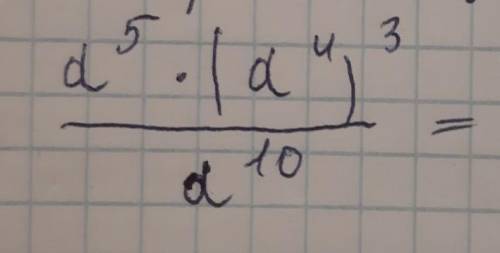 a⁵ · (a⁴)³
a¹⁰ =